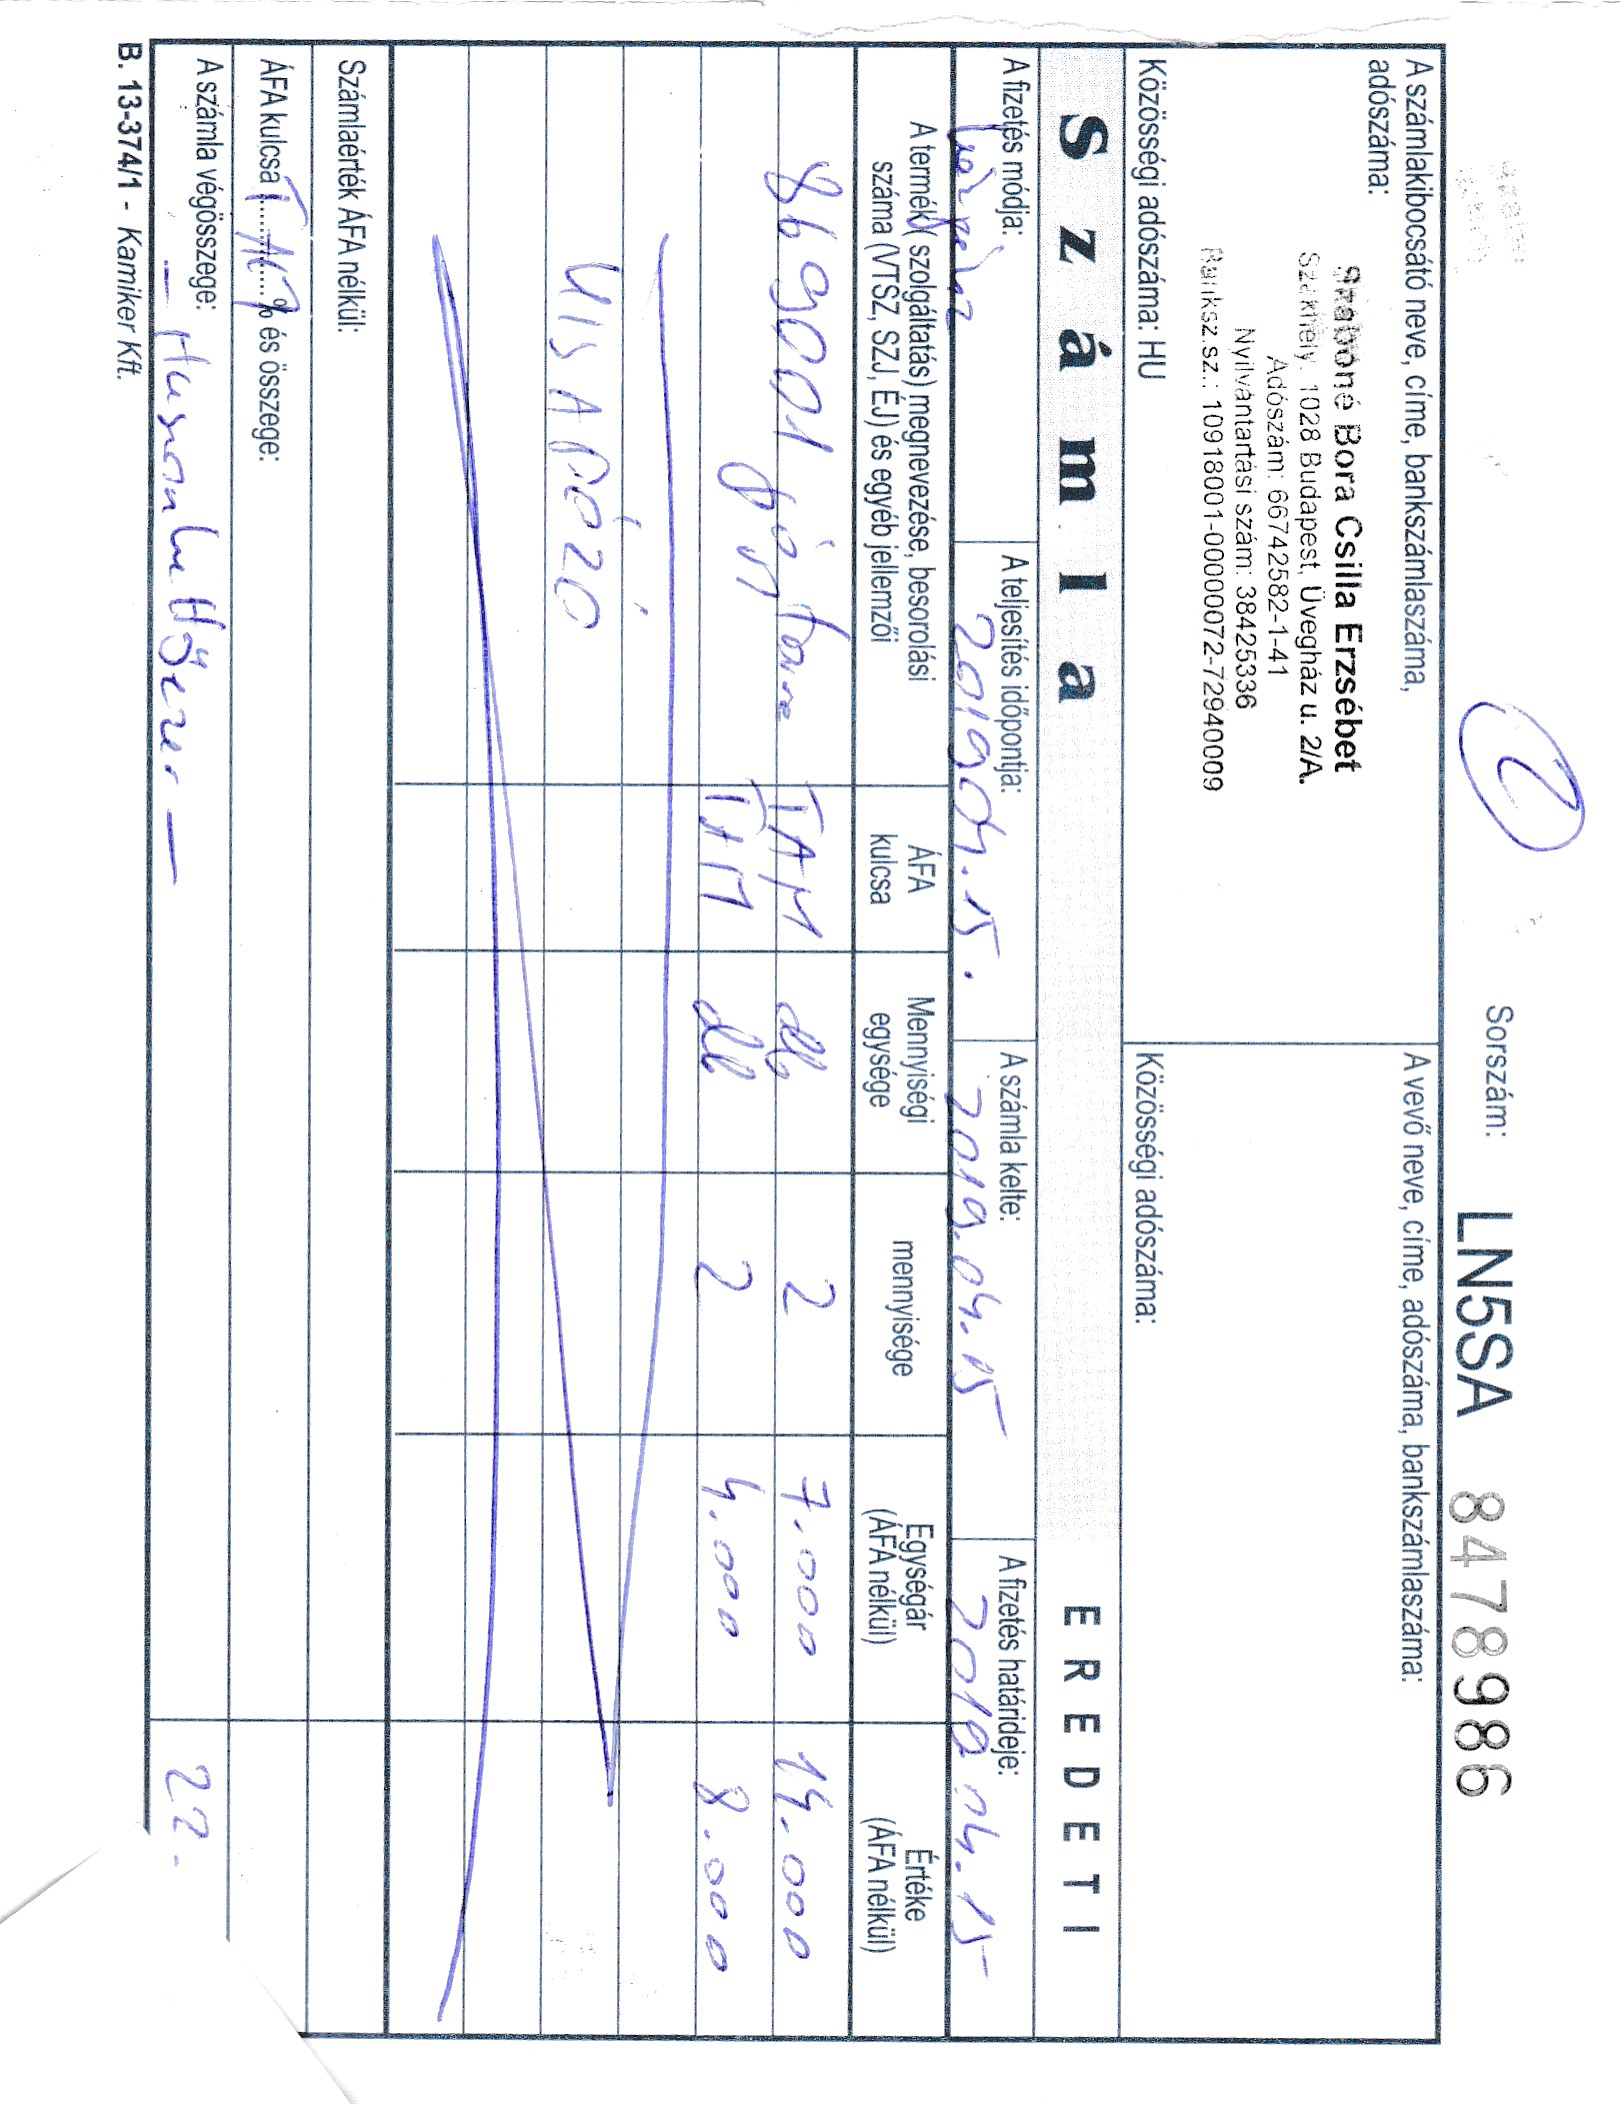 Sorszám: LN5SA 8478986
A számlakibocsátó neve, címe, bankszámlaszáma,
adószáma:
Szabóné Bora Csilla Erzsébet
Székhely: 1028 Budapest, Üvegház u. 2/A.
Adószám: 66742582-1-41
Nyilvántartási szám: 38425336
Banksz.sz.: 10918001-00000072-72940009
Közösségi adószáma: HU
A vevő neve, címe, adószáma, bankszámlaszáma:
Közösségi adószáma:
Számla
EREDETI
A fizetés módja:
A teljesítés időpontja:
2019.04.15.
A számla kelte:
2019.04.15
A fizetés határideje:
2019.04.15
A termék (szolgáltatás) megnevezése, besorolási
száma (VTSZ, SZJ, ÉJ) és egyéb jellemzői
ÁFA
kulcsa
Mennyiségi
egysége
mennyisége
Egységár
(ÁFA nélkül)
Értéke
(ÁFA nélkül)
869001 TAM db 2 7.000 14.000
TAM db 2 4.000 8.000
Számlaérték ÁFA nélkül:
ÁFA kulcsa TAM % és összege:
A számla végösszege:
22.
B. 13-374/1 - Kamiker Kft.